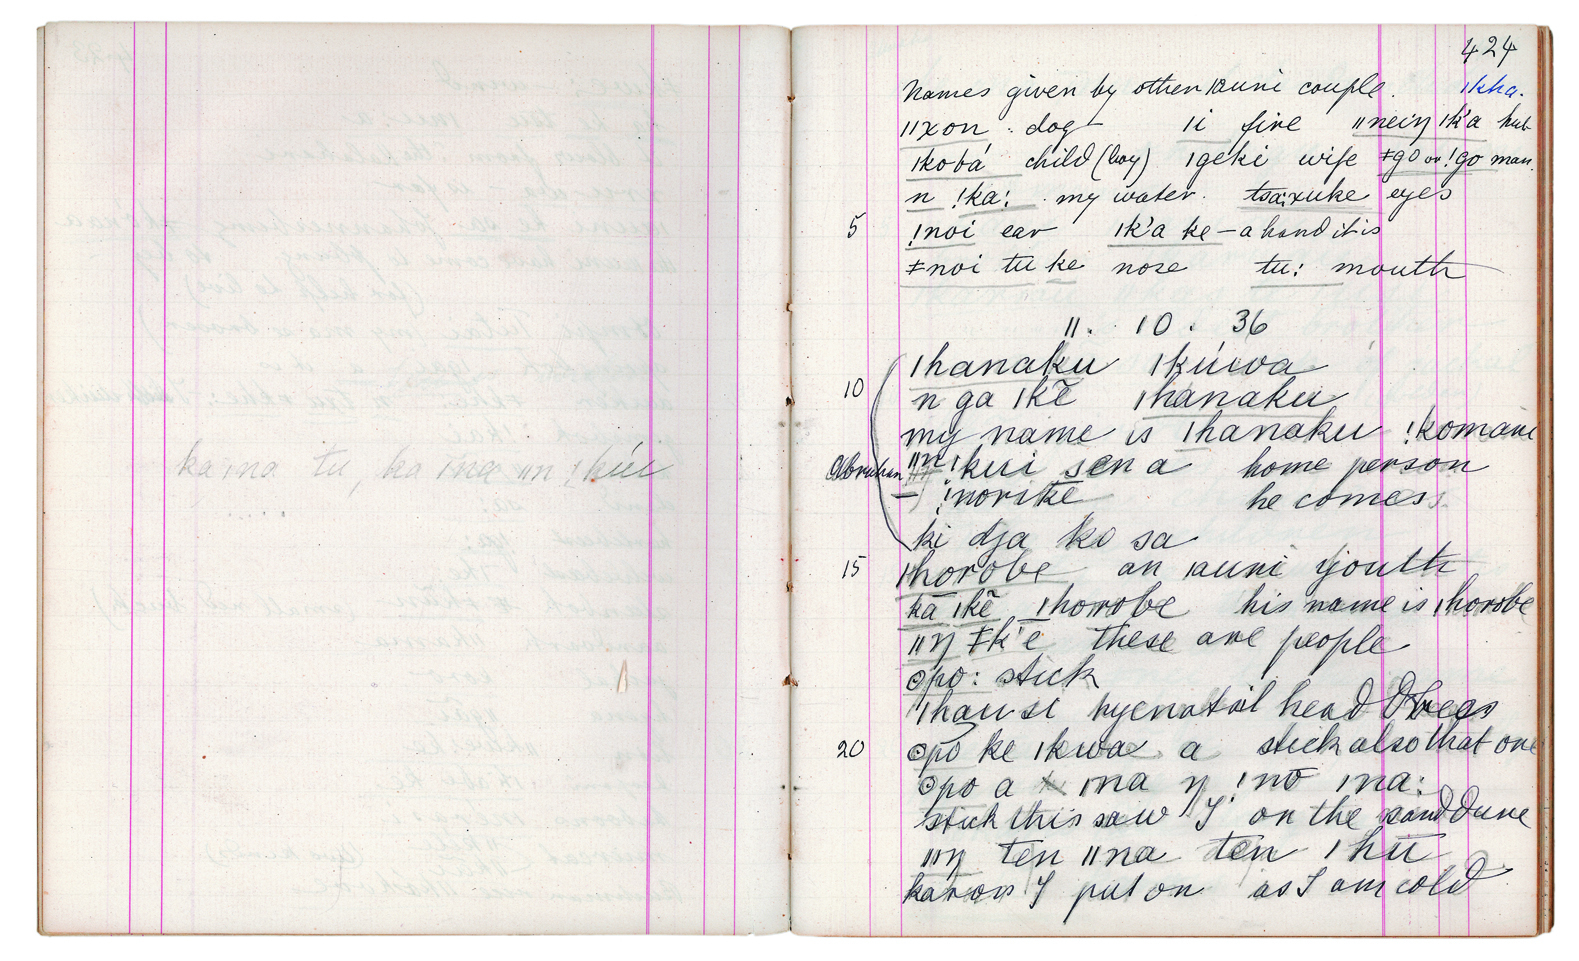 ka ǀna tu, ka ǀna ǁn !kúi
424
Names given by other ǀauni couple. ǀkha.
ǁxon : dog ǀi fire ǁneiŋ ǀk'a hut
ǀkobá child (boy) ǀgeki wife ǂgo or !go man.
n !ka: my water. tsaxuke eyes
5 !noi ear ǀk'a ke – a hand it is
ǂnoi tu ke nose tu: mouth
11. 10. 36
ǀhanaku ǀkúwa
10 n ga ǀkē ǀhanaku
my name is ǀhanaku !komani
Abraham ǁŋ !kui sen a home person
– !norike he comes.
ki dja ko sa
15 ǀhorobe an ǀauni youth
ka ǀkē ǀhorobe his name is ǀhorobe
ǁŋ ǂk'e these are people
ʘpo: stick
ǀhau si hyenatail head
20 ʘpo ke ǀkwa a stick also that one
ʘpo a ǀna ŋ !nō ǀna:
stick this saw I on the sand dune
ǁŋ ten ǁna ten ǀhū
kaross I put on as I am cold